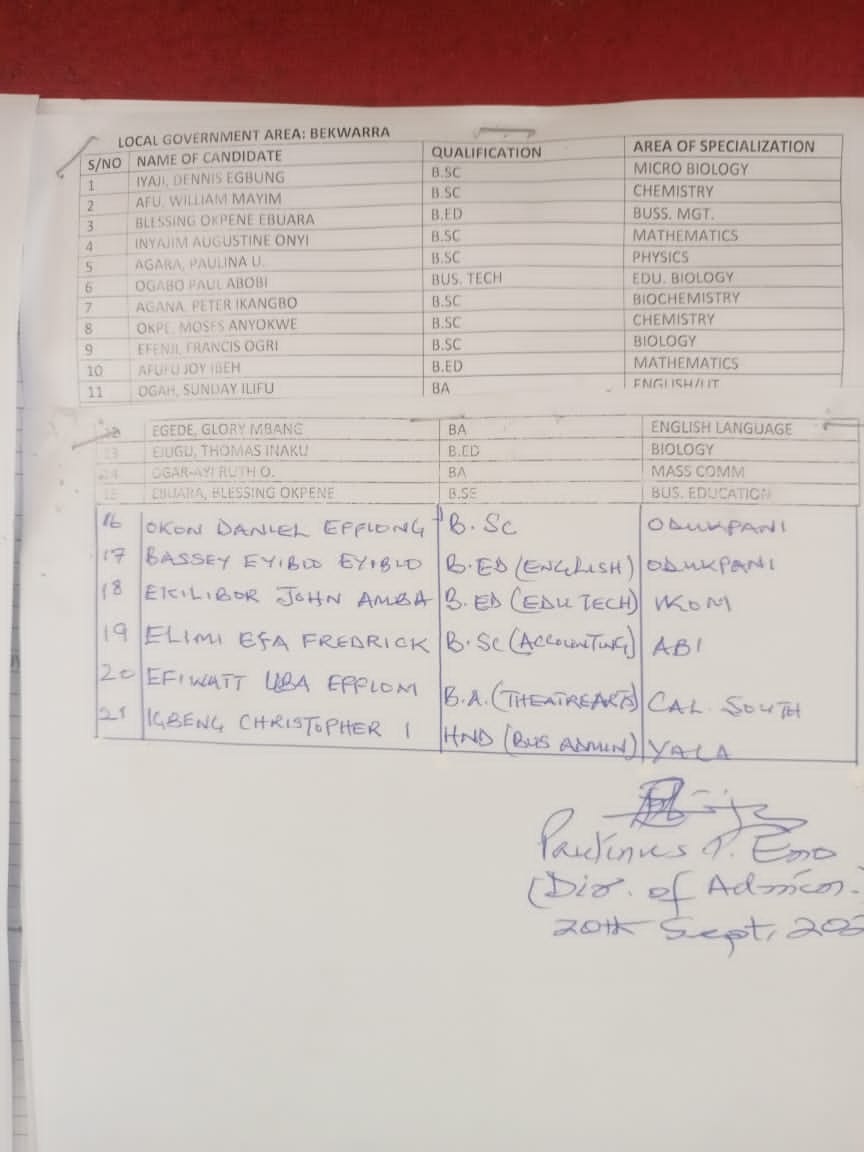 LOCAL GOVERNMENT AREA: BEKWARRA
S/NO NAME OF CANDIDATE QUALIFICATION AREA OF SPECIALIZATION
1 IYAJI, DENNIS EGBUNG B.SC MICRO BIOLOGY
2 AFU, WILLIAM MAYIM B.SC CHEMISTRY
3 BLESSING OKPENE EBUARA B.ED BUSS. MGT.
4 INYAJIM AUGUSTINE ONYI B.SC MATHEMATICS
5 AGARA, PAULINA U. B.SC PHYSICS
6 OGABO PAUL ABOBI BUS. TECH EDU. BIOLOGY
7 AGANA, PETER IKANGBO B.SC BIOCHEMISTRY
8 OKPE, MOSES ANYOKWE B.SC CHEMISTRY
9 EFENJI, FRANCIS OGRI B.SC BIOLOGY
10 AFUFU JOY IBEH B.ED MATHEMATICS
11 OGAH, SUNDAY ILIFU BA ENGLISH/LIT
EGEDE, GLORY MBANG BA ENGLISH LANGUAGE
13 EJUGU, THOMAS INAKU B.ED BIOLOGY
OGAR-AYI RUTH O. BA MASS COMM
15 EBUARA, BLESSING OKPENE B.SE BUS. EDUCATION
16 OKON DANIEL EFFIONG B.Sc ODUKPANI
17 BASSEY EYIBIO EYIBIO B.ED (ENGLISH) ODUKPANI
18 EKILIBOR JOHN AMBA B.ED (EDU TECH) IKOM
19 ELIMI EFA FREDRICK B.Sc (ACCOUNTING) ABI
20 EFIWATT UBA EFFIOM B.A. (THEATRE ARTS) CAL. SOUTH
21 IGBENG CHRISTOPHER I HND (BUS ADMIN) YALA
Paulinus P. Eno
(Dir. of Admin.
20th Sept, 202